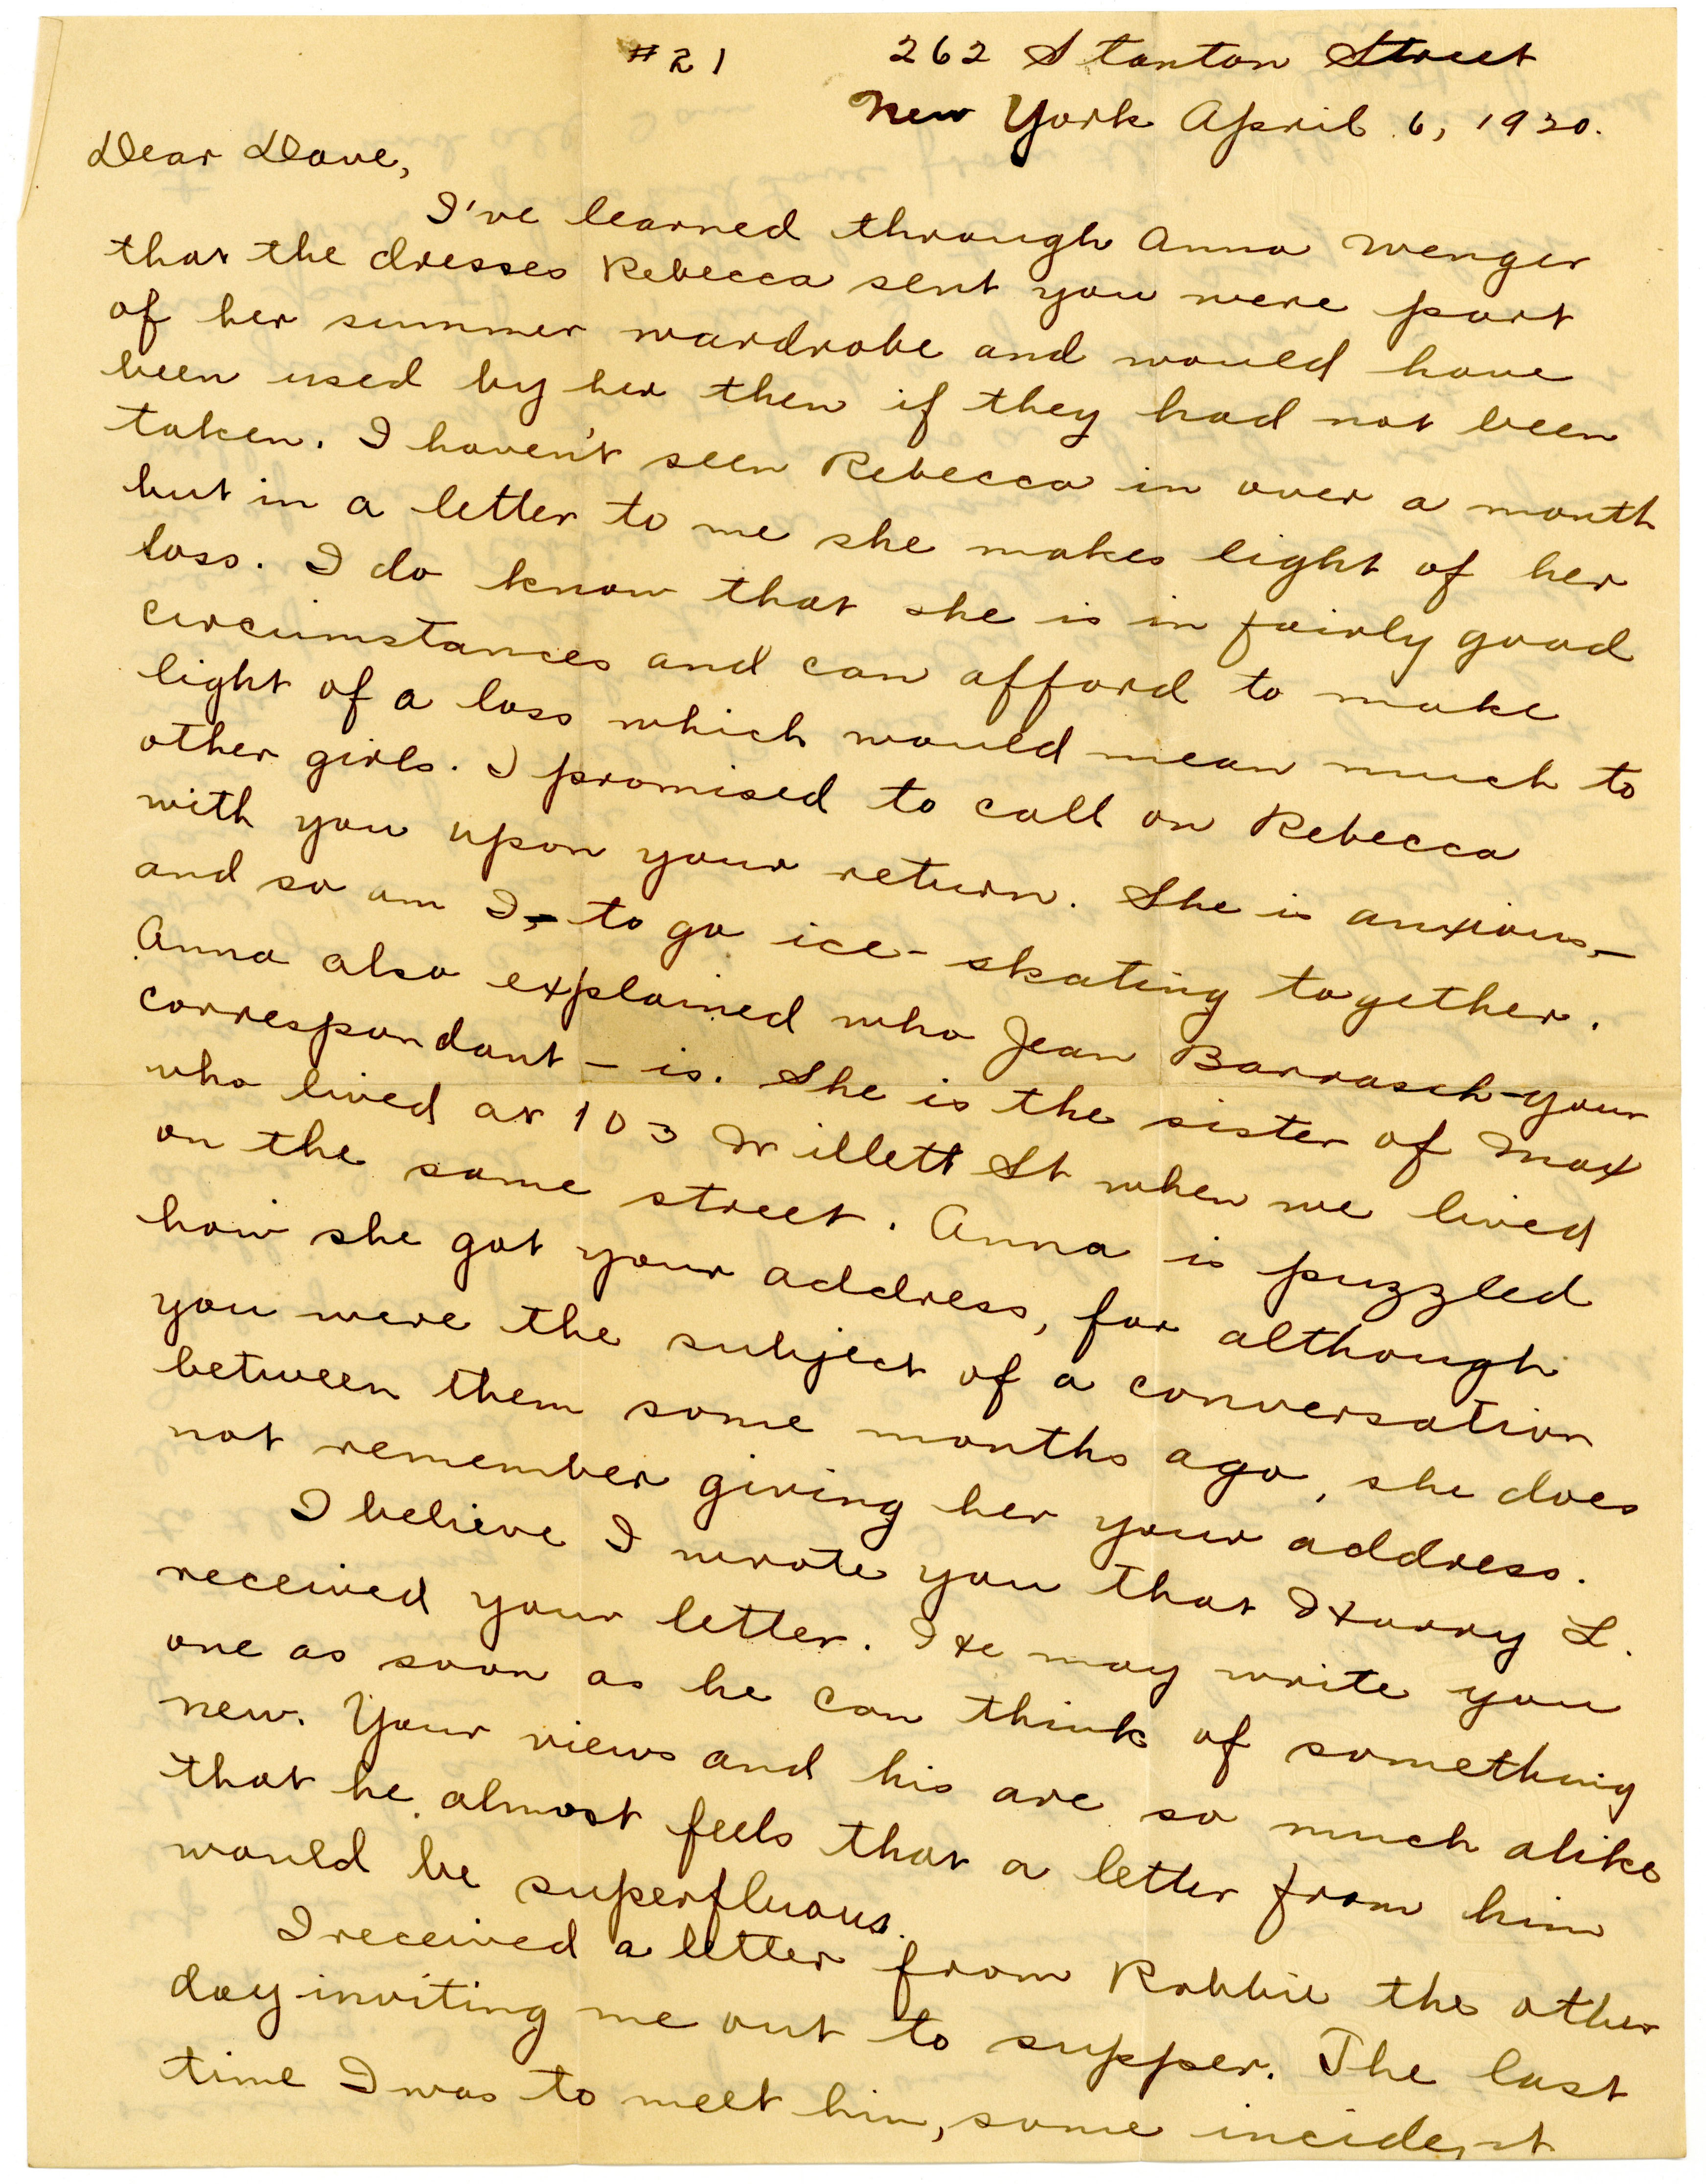 #21 262 Stanton Street
New York April 6, 1920.
Dear Dave,
I've learned through Anna Wenger
that the dresses Rebecca sent you were part
of her summer wardrobe and would have
been used by her then if they had not been
taken. I haven't seen Rebecca in over a month
but in a letter to me she makes light of her
loss. I do know that she is in fairly good
circumstances and can afford to make
light of a loss which would mean much to
other girls. I promised to call on Rebecca
with you upon your return. She is anxious,—
and so am I,— to go ice-skating together.
Anna also explained who Jean Barrasch—your
correspondant — is. She is the sister of Max
who lived at 103 Willett St when we lived
on the same street. Anna is puzzled
how she got your address, for although
you were the subject of a conversation
between them some months ago, she does
not remember giving her your address.
I believe I wrote you that Harry L.
received your letter. He may write you
one as soon as he can think of something
new. Your views and his are so much alike
that he almost feels that a letter from him
would be superfluous.
I received a letter from Robbie the other
day inviting me out to supper. The last
time I was to meet him, some incident